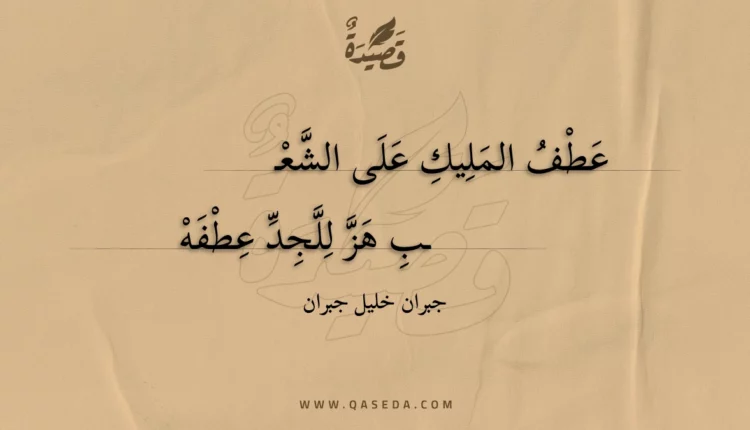 قَصِيدَةٌ
عَطْفُ المَلِيكِ عَلَى الشَّعْـ
ـبِ هَزَّ لِلَّجِدِّ عِطْفَهْ
جبران خليل جبران
WWW.QASEDA.COM